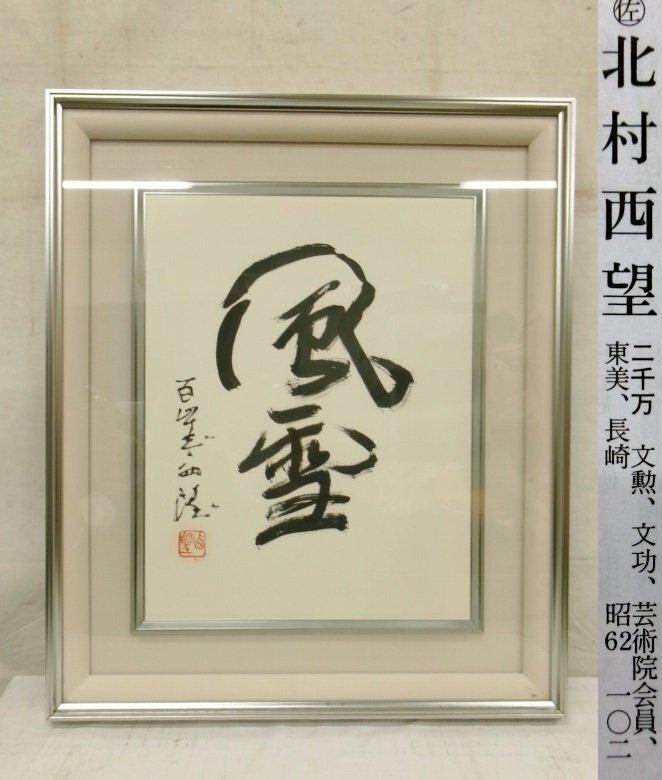 風雪
百一歳 西望
西望
㊨
北村西望
二千万 文勲、文功、芸術院会員、
東美、長崎 昭62 一〇二